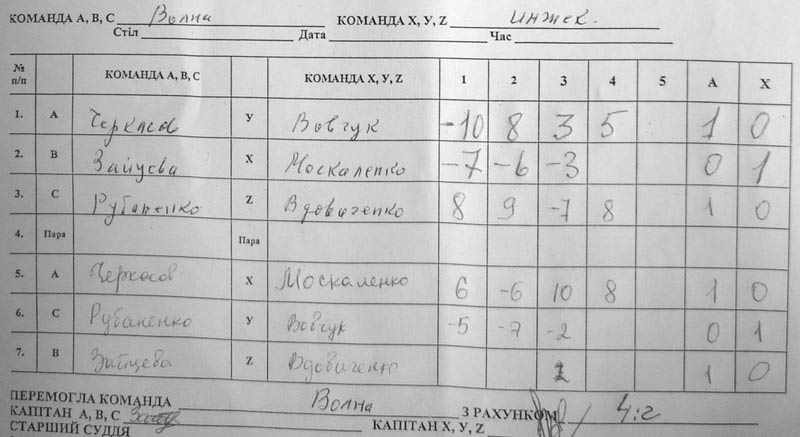 КОМАНДА А, В, С Волна КОМАНДА Х, У, Z инжек.
Стіл Дата Час
№ п/п КОМАНДА А, В, С КОМАНДА Х, У, Z 1 2 3 4 5 А Х
1. А Черкасов У Вовчук -10 8 3 5 1 0
2. В Зайцева Х Москаленко -7 -6 -3 0 1
3. С Рубаненко Z Вдовиченко 8 9 -7 8 1 0
4. Пара Пара
5. А Черкасов Х Москаленко 6 -6 10 8 1 0
6. С Рубаненко У Вовчук -5 -7 -2 0 1
7. В Зайцева Z Вдовиченко 1 0
ПЕРЕМОГЛА КОМАНДА Волна З РАХУНКОМ 4:2
КАПІТАН А, В, С КАПІТАН Х, У, Z
СТАРШИЙ СУДДЯ